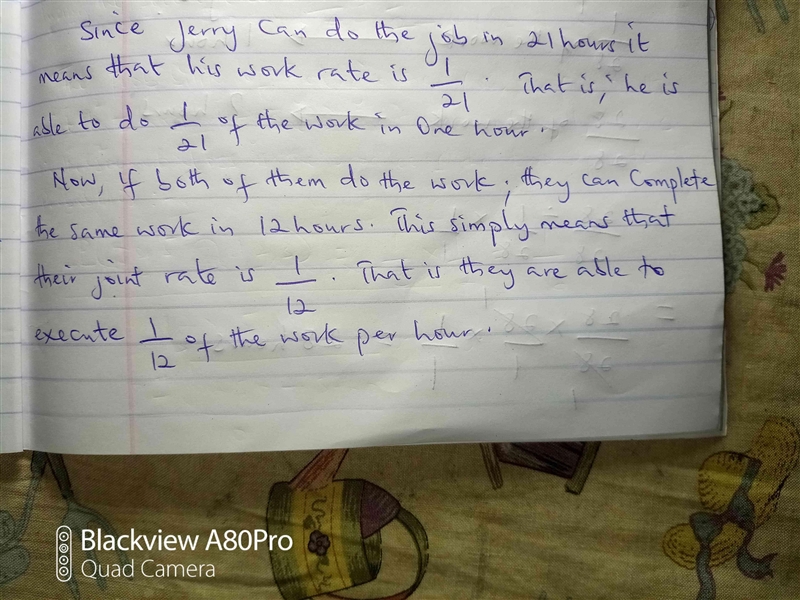 Since Jerry Can do the job in 21 hours it
means that his work rate is 1/21. That is, he is
able to do 1/21 of the work in One hour.
Now, if both of them do the work, they can Complete
the same work in 12 hours. This simply means that
their joint rate is 1/12. That is they are able to
execute 1/12 of the work per hour.
Blackview A80Pro
Quad Camera